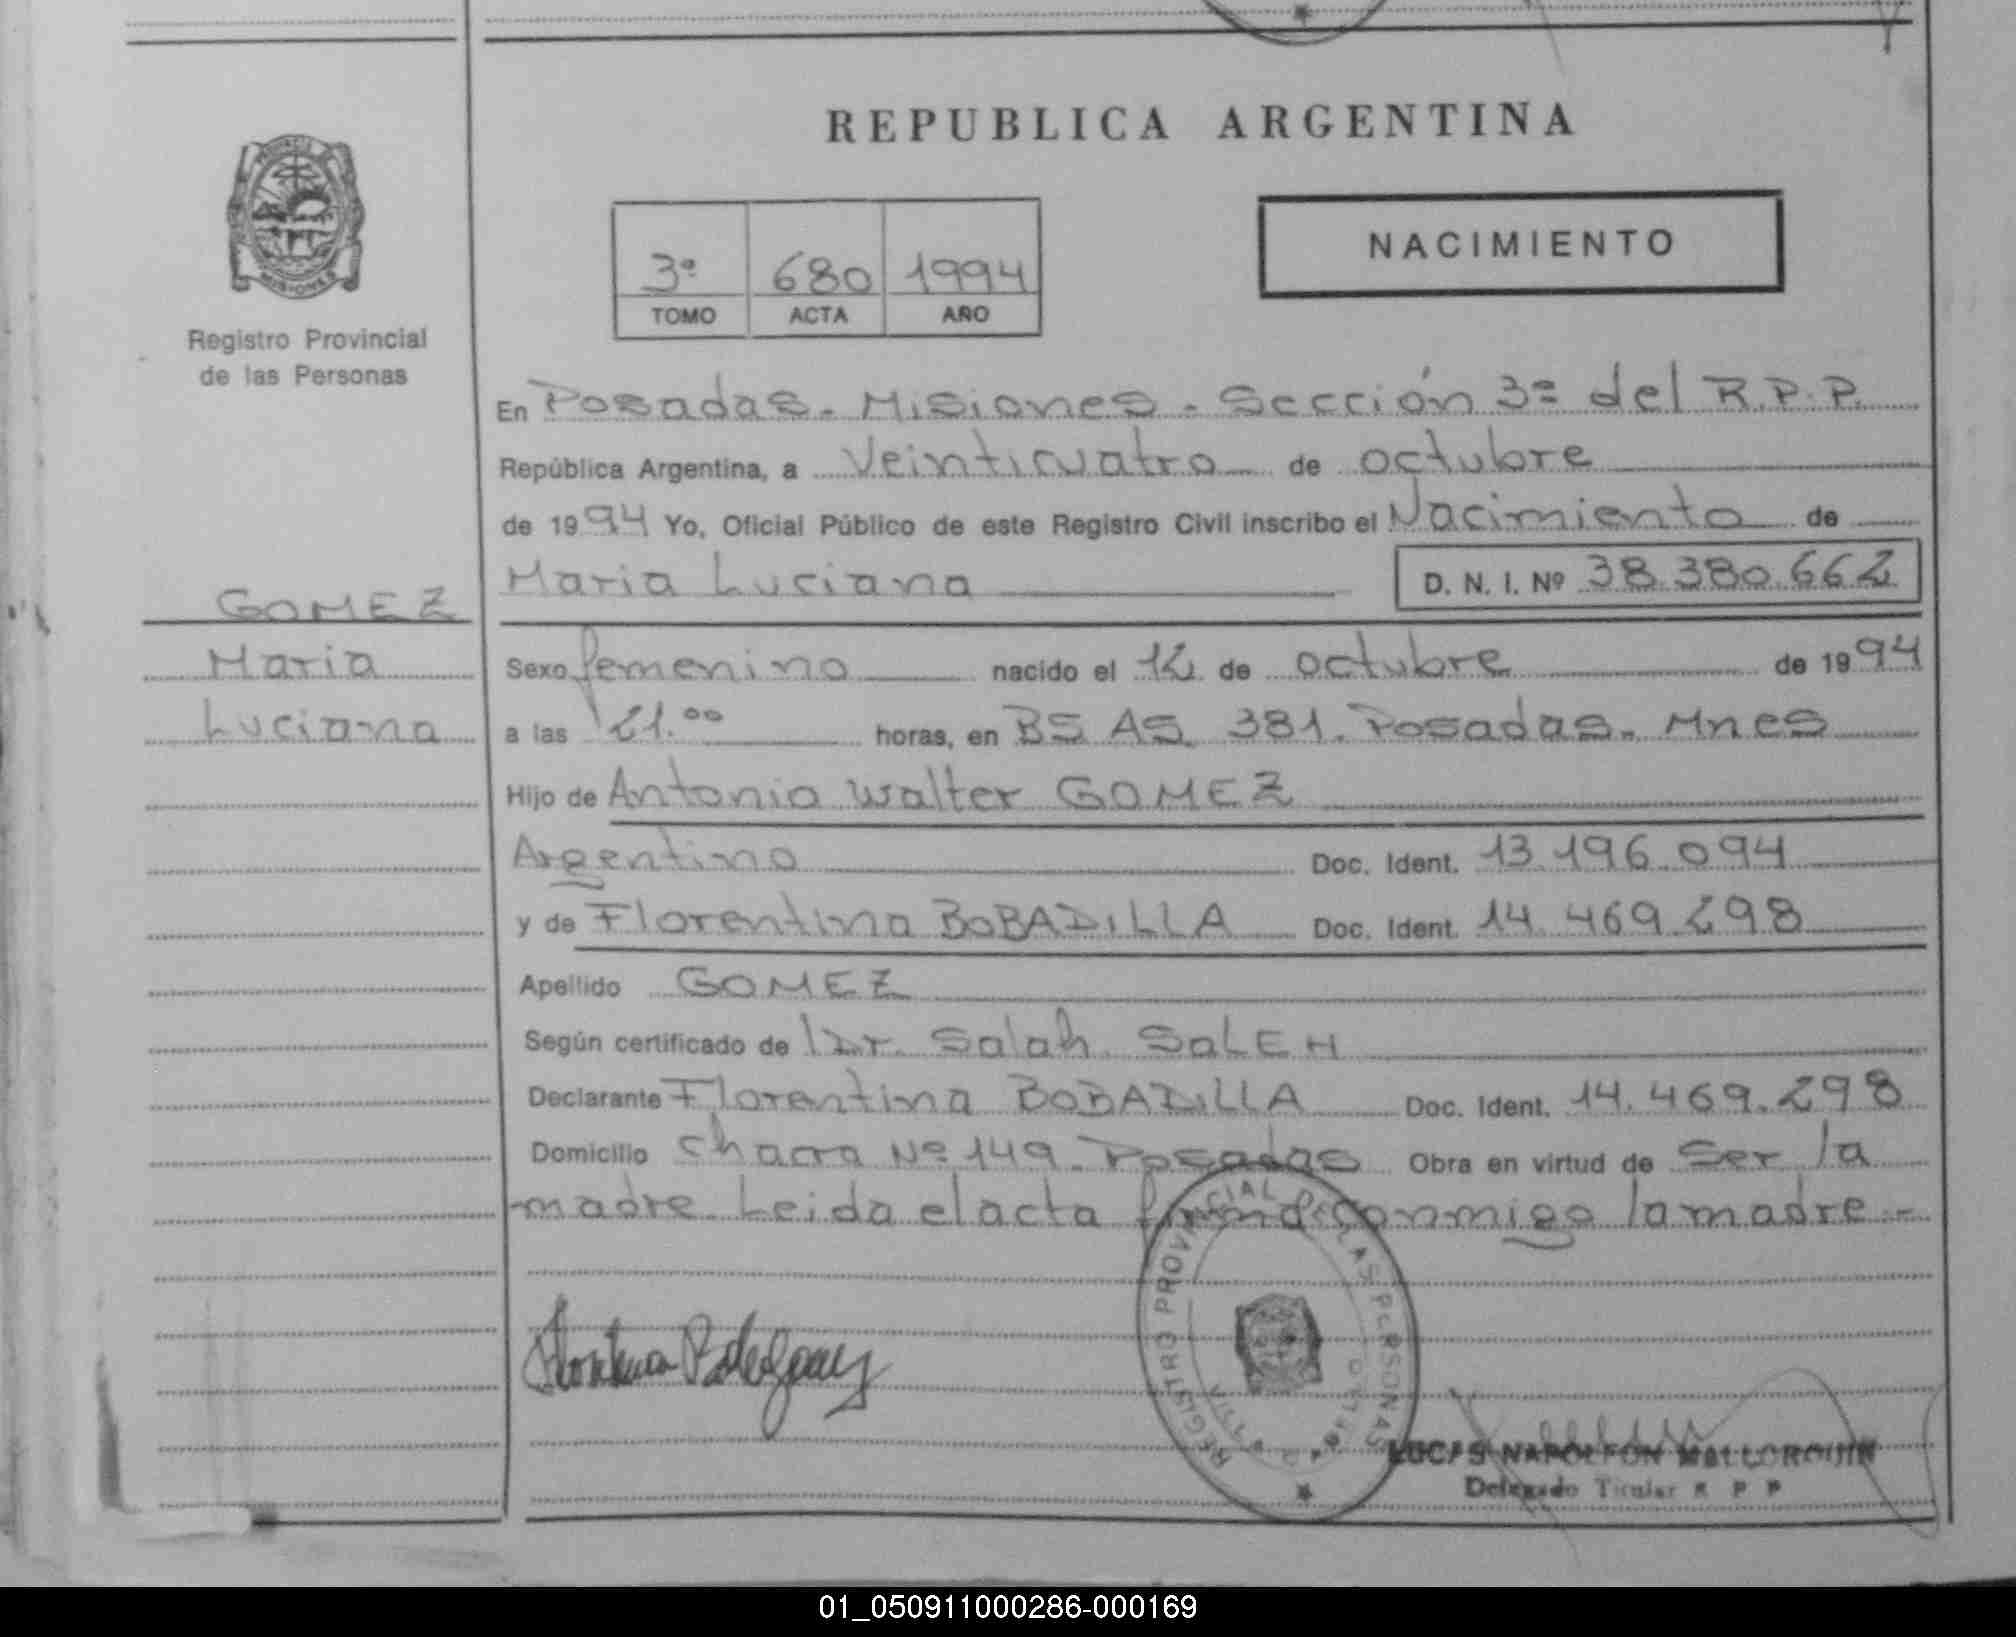 REPUBLICA ARGENTINA
PROVINCIA DE
MISIONES
Registro Provincial
de las Personas
3º 680 1994
TOMO ACTA AÑO
NACIMIENTO
En Posadas - Misiones - Sección 3ª del R.P.P.
República Argentina, a Veinticuatro de octubre
de 1994 Yo, Oficial Público de este Registro Civil inscribo el Nacimiento de
Maria Luciana D. N. I. Nº 38.380.662
GOMEZ
Maria
Luciana
Sexo femenino nacido el 12 de octubre de 1994
a las 21.00 horas, en BS AS. 381. Posadas. Mnes
Hijo de Antonio Walter GOMEZ
Argentino Doc. Ident. 13.196.094
y de Florentina BOBADILLA Doc. Ident. 14.469.298
Apellido GOMEZ
Según certificado de Dr. Salah SALEH
Declarante Florentina BOBADILLA Doc. Ident. 14.469.298
Domicilio Chacra Nº 149. Posadas Obra en virtud de Ser la
madre. Leida el acta firmando conmigo la madre.-
REGISTRO PROVINCIAL DE LAS PERSONAS
NAPOLEON MALLORQUIN
Delegado Titular R P P
01_050911000286-000169